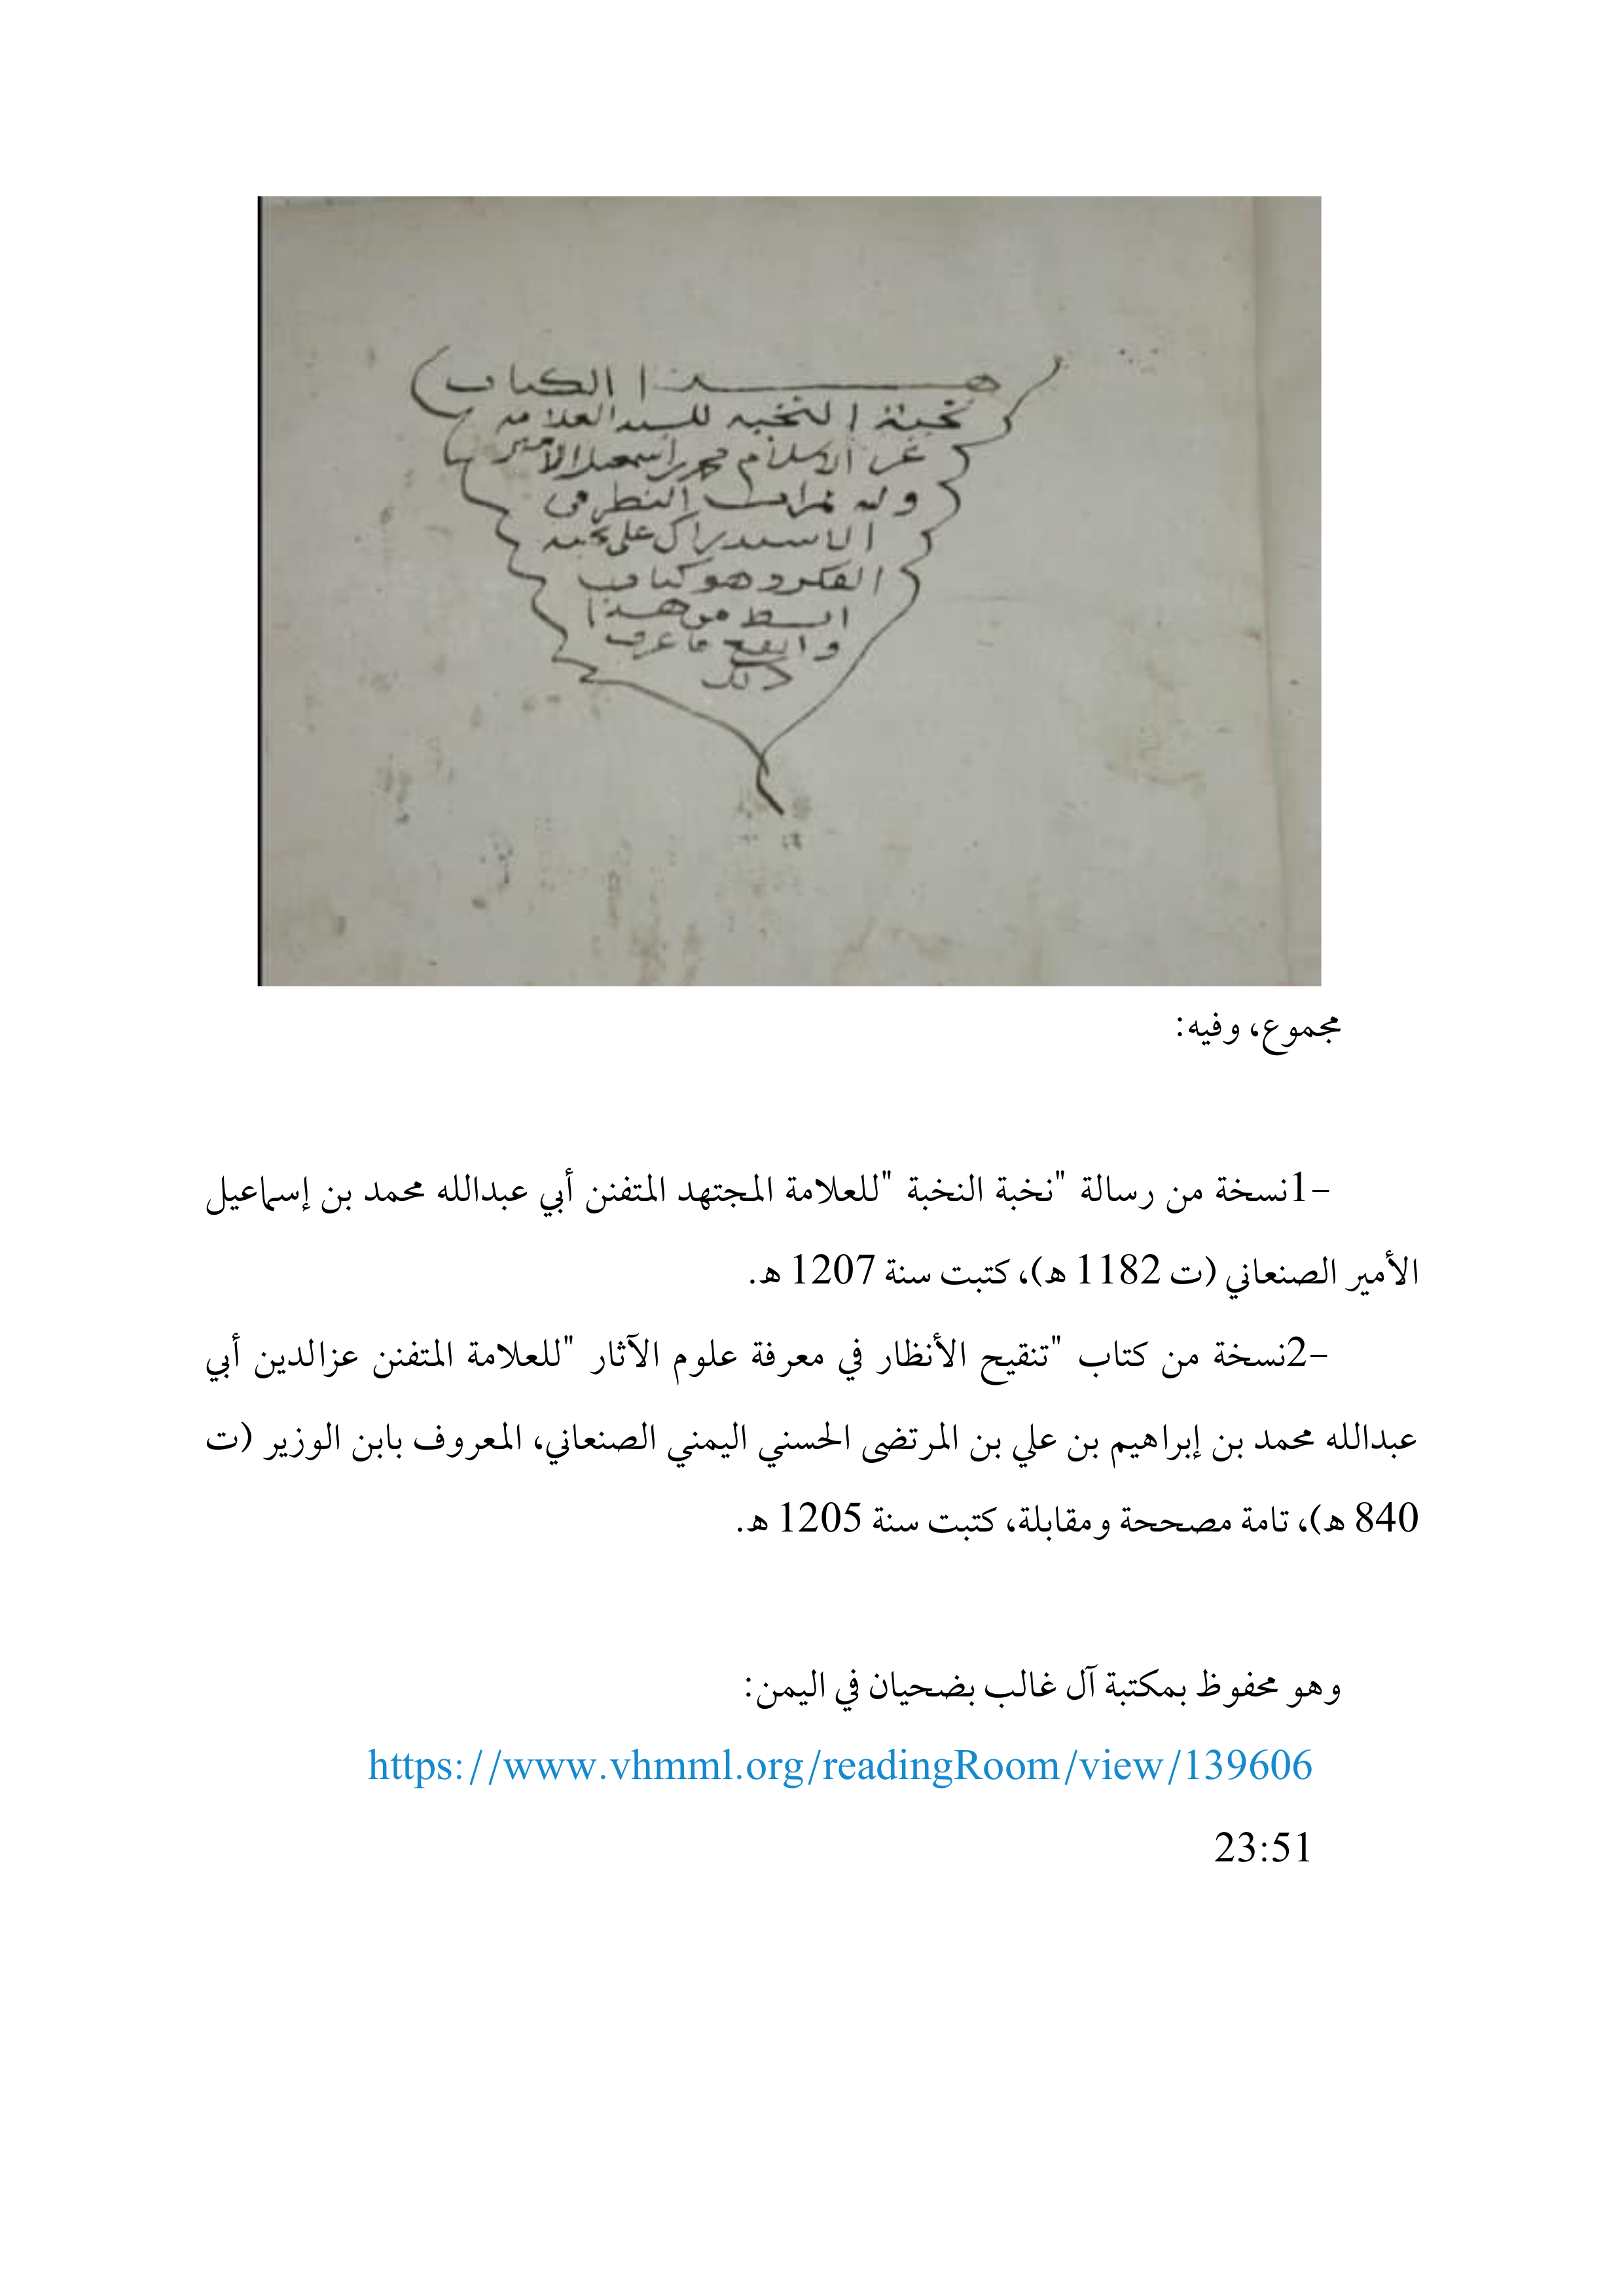 هذا الكتاب
نخبة النخبه للسيد العلامه
عز الاسلام محمد بن اسمعيل الأمير
وله ثمرات النظر في
الاستدراك على نخبه
الفكر وهو كتاب
ابسط من هذا
وانفع فاعرف
ذلك
مجموع، وفيه:
-1نسخة من رسالة "نخبة النخبة "للعلامة المجتهد المتفنن أبي عبدالله محمد بن إسماعيل
الأمير الصنعاني (ت 1182 ه)، كتبت سنة 1207 ه.
-2نسخة من كتاب "تنقيح الأنظار في معرفة علوم الآثار "للعلامة المتفنن عزالدين أبي
عبدالله محمد بن إبراهيم بن علي بن المرتضى الحسني اليمني الصنعاني، المعروف بابن الوزير (ت
840 ه)، تامة مصححة ومقابلة، كتبت سنة 1205 ه.
وهو محفوظ بمكتبة آل غالب بضحيان في اليمن:
https://www.vhmml.org/readingRoom/view/139606
23:51